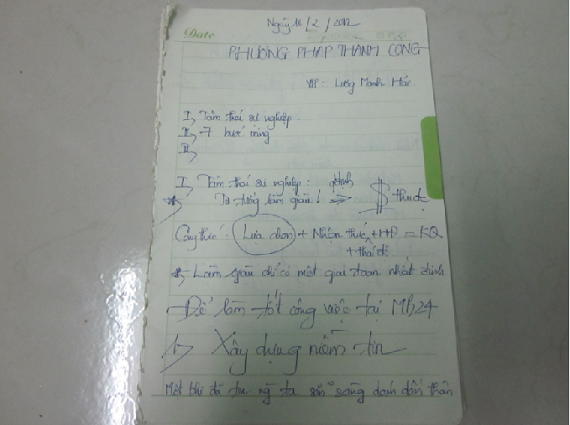 Ngày 16/2/2012
Date
PHƯƠNG PHÁP THÀNH CÔNG
VIP: Lương Mạnh Hải
I, Tâm thái sự nghiệp
II, 7 bước
III,
I, Tâm thái sự nghiệp:
Tư tưởng làm giàu! => $
Công thức: Lựa chọn + Nhận thức + + P = KQ
+ thái độ
Làm giàu chỉ có một giai đoạn nhất định
Để làm tốt công việc tại MB24
1, Xây dựng niềm tin
Một khi đã tin ng ta sẵn sàng dấn thân
Date